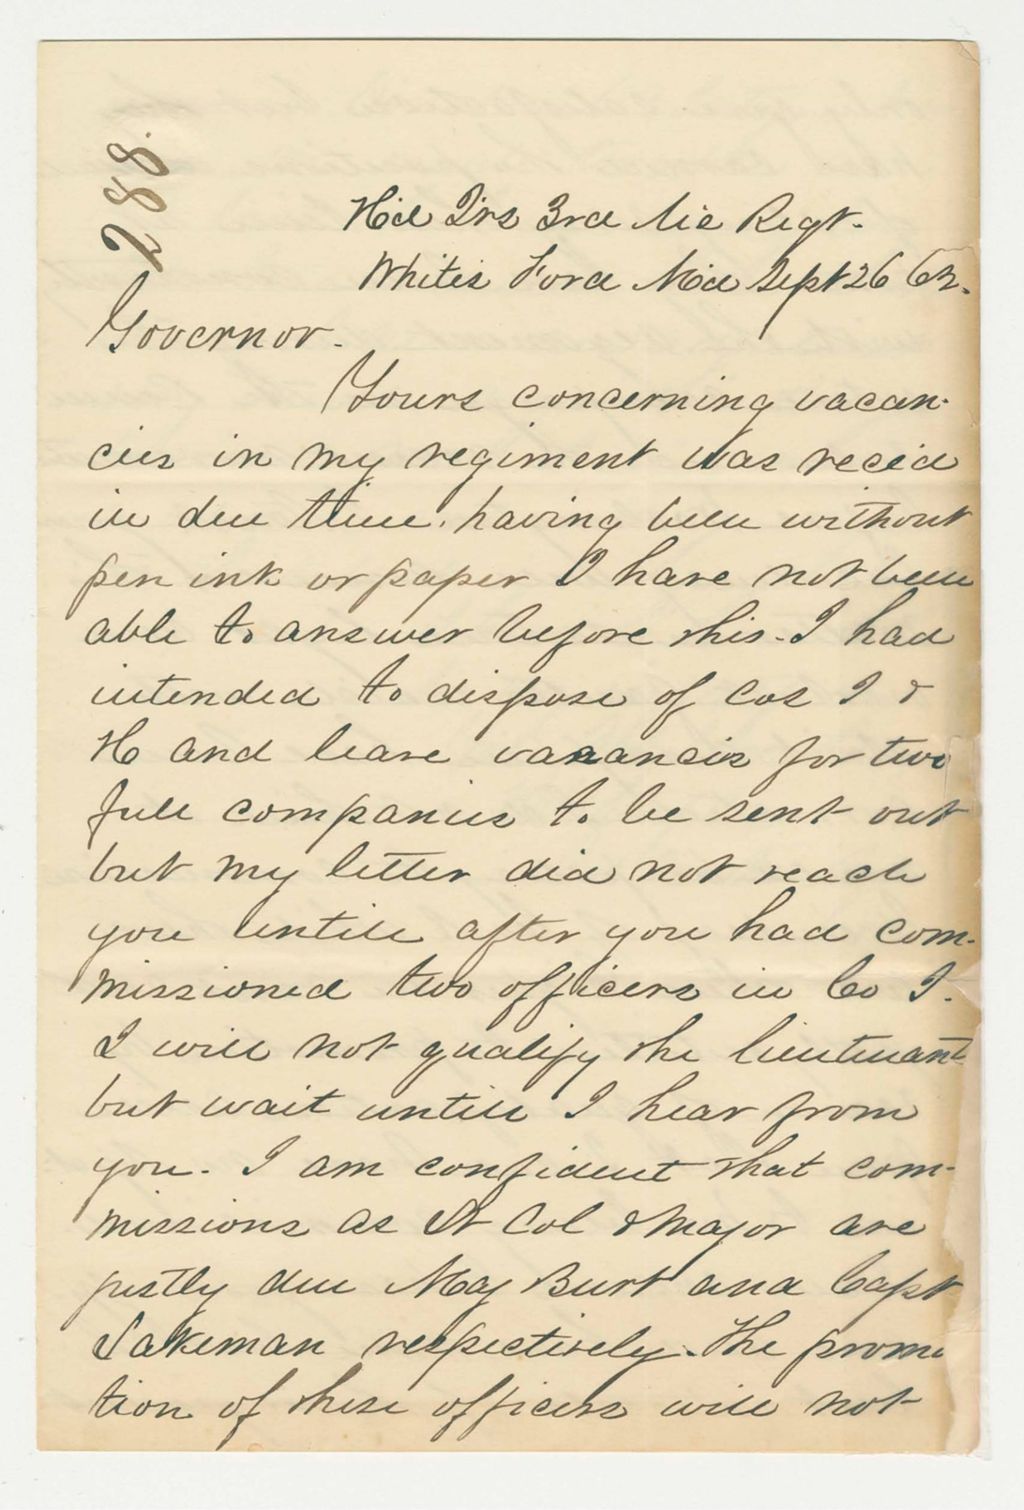 288.
H'd Q'rs 3rd Me Regt.
White's Ford M'd Sept 26 62.
Governor.
Yours concerning vacan-
cies in my regiment was rece'd
in due time. having been without
pen ink or paper I have not been
able to answer before this. I had
intended to dispose of Cos I &
H and leave vacancies for two
full companies to be sent out
but my letter did not reach
you untill after you had com-
missioned two officers in Co I.
I will not qualify the lieutenant
but wait untill I hear from
you. I am confident that com-
missions as Lt Col & Major are
justly due Maj Burt and Capt
Lakeman respectively. The promo
tion of these officers will not